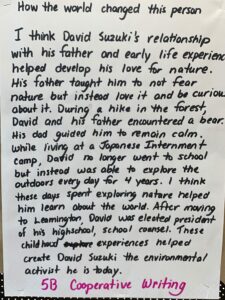 How the world changed this person
I think David Suzuki's relationship
with his father and early life experience
helped develop his love for nature.
His father taught him to not fear
nature but instead love it and be curious
about it. During a hike in the forest,
David and his father encountered a bear.
His dad guided him to remain calm.
While living at a Japanese Internment
camp, David no longer went to school
but instead was able to explore the
outdoors every day for 4 years. I think
these days spent exploring nature helped
him learn about the world. After moving
to Leamington, David was elected president
of his highschool, school counsel. These
childhood experiences helped
create David Suzuki the environmental
activist he is today.
5B Cooperative Writing